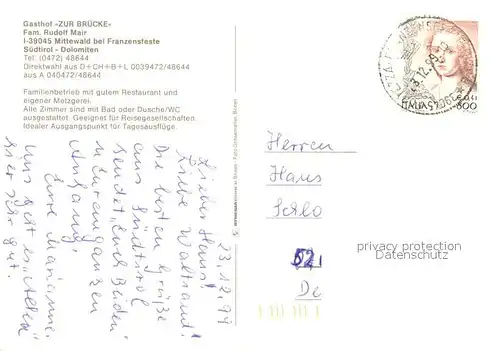 Gasthof »ZUR BRÜCKE«
Fam. Rudolf Mair
I-39045 Mittewald bei Franzensfeste
Südtirol - Dolomiten
Tel. (0472) 48644
Direktwahl aus D+CH+B+L 0039472/48644
aus A 040472/48644
Familienbetrieb mit gutem Restaurant und
eigener Metzgerei.
Alle Zimmer sind mit Bad oder Dusche/WC
ausgestattet. Geeignet für Reisegesellschaften.
Idealer Ausgangspunkt für Tagesausflüge.
23.12.99
Lieber Hans!
Liebe Waltraud!
Die besten Grüße
aus Südtirol
sendet Euch Beiden
u. Eurem ganzen
Anhang
Eure Marianne.
Uns geht es
hier sehr gut.
ITALIA
800
Herren
Hans
52
De
privacy protection
Datenschutz